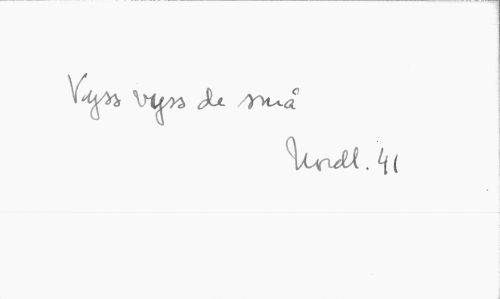 Vyss vyss de små
Nordl. 41